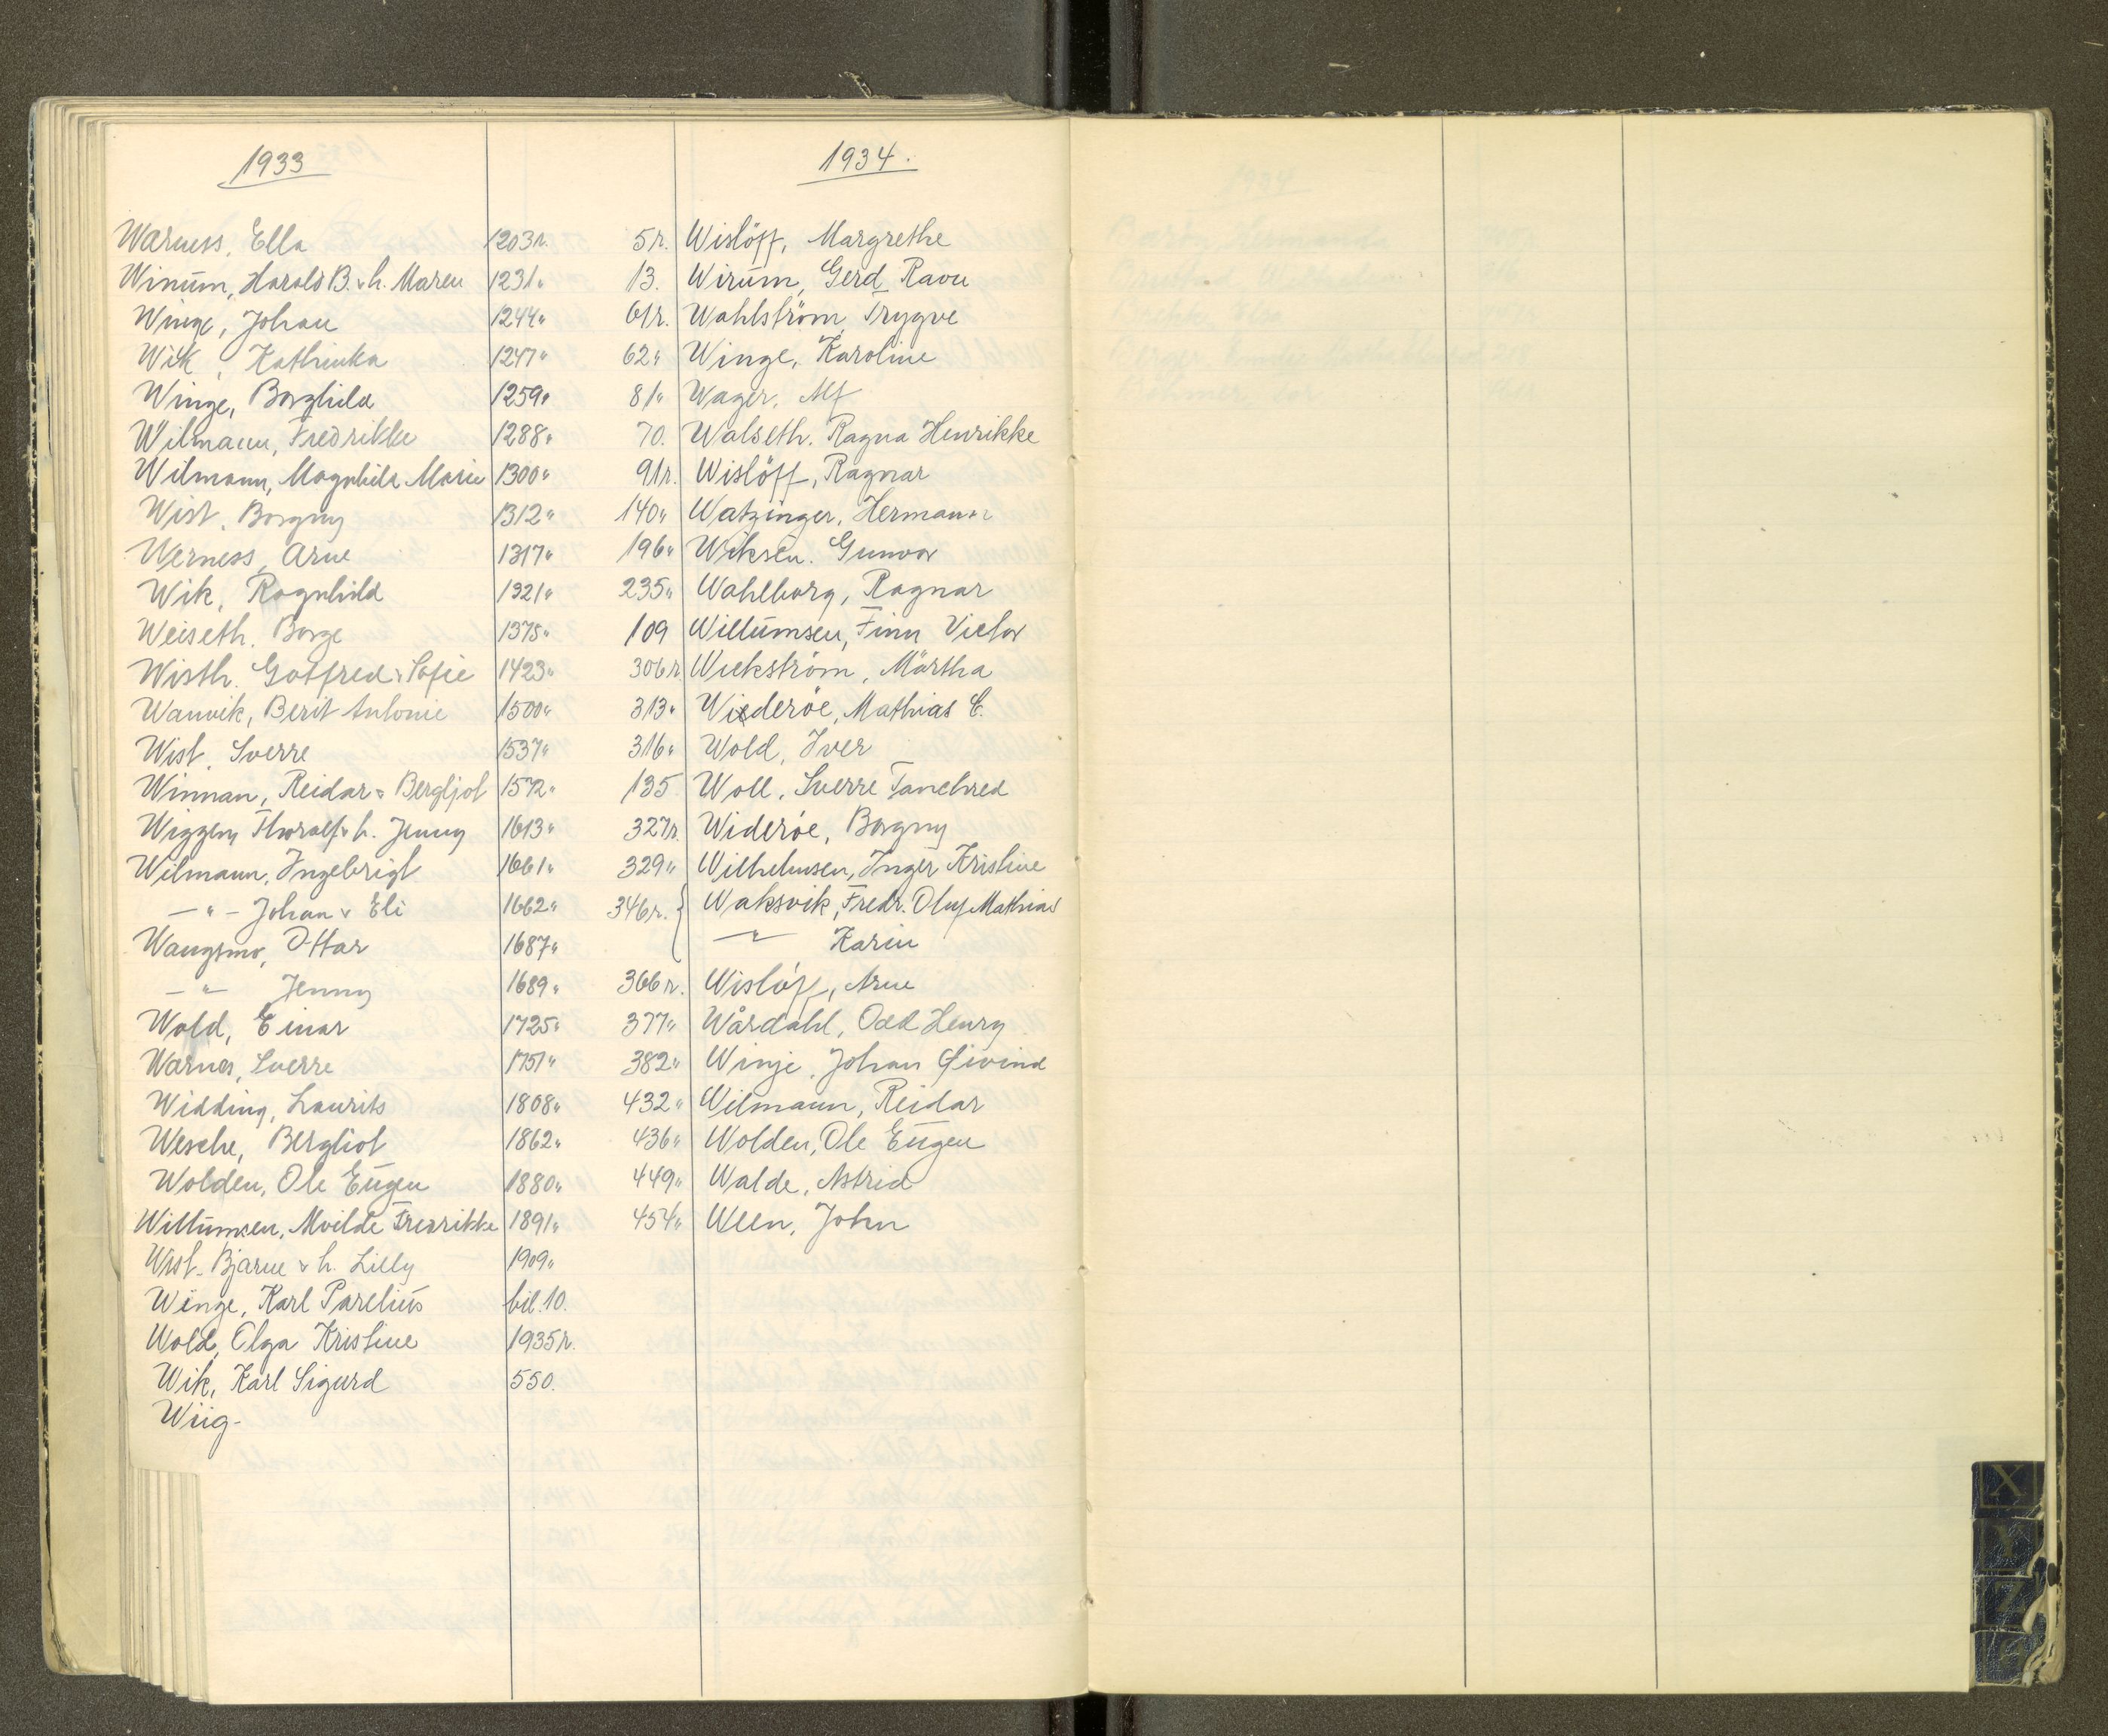 1933
Warness, Ella 1203 r.
Winum, Harald B. & h. Maren 1231 "
Winge, Johan 1244 "
Wik, Kathinka 1247 "
Winge, Borghild 1259 "
Wilmann, Fredrikke 1288 "
Wilmann, Magnhild Marie 1300 "
Wist, Borgny 1312 "
Werness, Arne 1317 "
Wik, Ragnhild 1321 "
Weiseth, Borge 1375 "
Wisth, Gotfred & Sofie 1423 "
Wanvik, Berit Antonie 1500 "
Wist, Sverre 1537 "
Winnan, Reidar & Bergljot 1572 "
Wiggen, Thoralf & h. Jenny 1613 "
Wilmann, Ingebrigt 1661 "
— " — Johan & Eli 1662 "
Wangsmo, Ottar 1687 "
— " — Jenny 1689 "
Wold, Einar 1725 "
Warnes, Sverre 1751 "
Widding, Laurits 1808 "
Wesche, Bergliot 1862 "
Wolden, Ole Eugen 1880 "
Willumsen, Mvilde Fredrikke 1891 "
Wist, Bjarne & h. Lilly 1909 "
Winge, Karl Parelius bil. 10.
Wold, Olga Kristine 1935 r.
Wik, Karl Sigurd 550.
Wiig -
1934.
5 r. Wislöff, Margrethe
13. Wirum, Gerd Ravn
61 r. Wahlström, Trygve
62 " Winge, Karoline
81 " Wager, Alf
70. Walseth, Ragna Henrikke
91 r. Wislöff, Ragnar
140 " Watzinger, Hermann
196 " Wiksen, Gunvor
235 " Wahlborg, Ragnar
109 Willumsen, Finn Victor
306 r. Wickström, Märtha
313 " Wiederöe, Mathias C.
316 " Wold, Iver
135 Woll, Sverre Tanchred
327 r. Wideröe, Borgny
329 " Wilhelmsen, Inger Kristine
346 r. { Waksvik, Fredr. Oluf Mathias
— " — Karin
366 r. Wislöff, Arne
377 " Wårdahl, Odd Henry
382 " Winje, Johan Øivind
432 " Wilmann, Reidar
436 " Wolden, Ole Eugen
449 " Walde, Astrid
454 " Ween, John
X
Y
Z